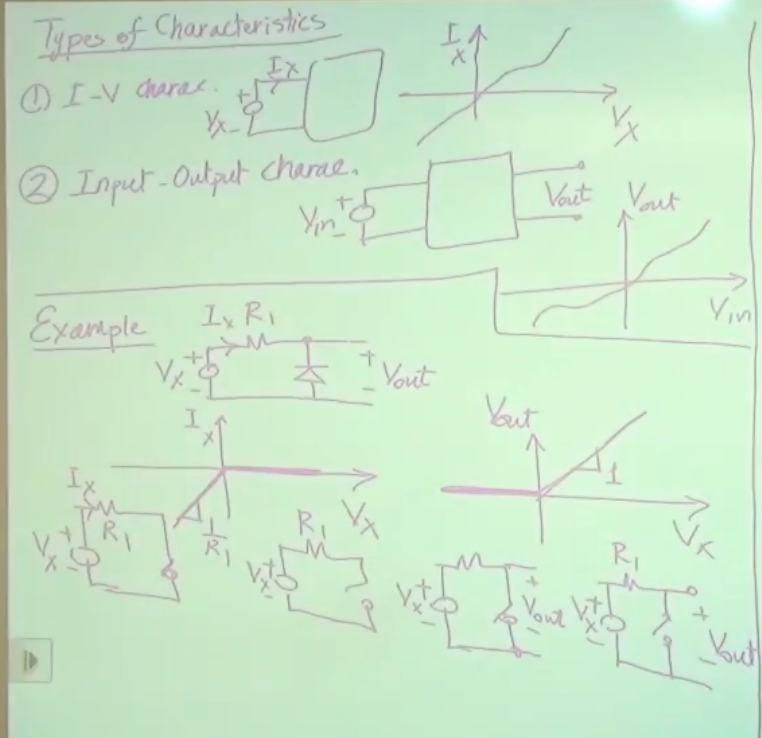 Types of Characteristics
① I-V charac.
Ix
+
Vx
-
Ix
Vx
② Input-Output charac.
Vin
+
-
Vout
Vout
Vin
Example
Ix R1
Vx
+
-
+
Vout
-
Ix
Vx
1/R1
Vout
1
Vx
Ix
R1
Vx
+
-
R1
Vx
+
-
Vx
+
-
+
Vout
-
R1
Vx
+
-
+
Vout
-